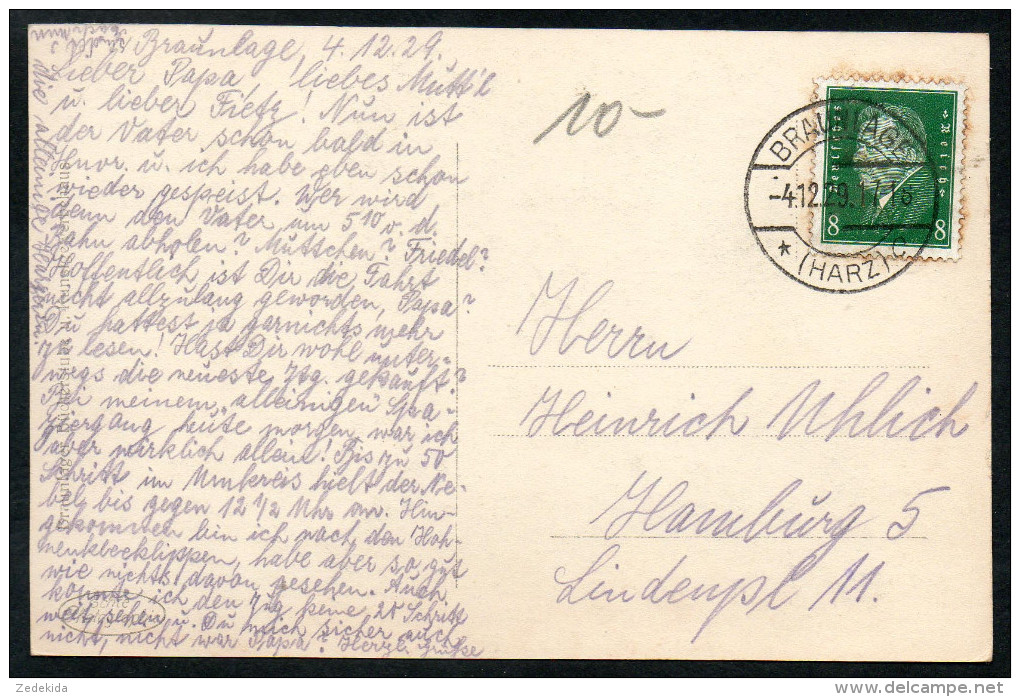 Braunlage, 4.12.29.
Lieber Papa, liebes Mutt'l
u. lieber Fietz! Nun ist
der Vater schon bald in
u. ich habe eben schon
wieder gespeist. Wer wird
denn den Vater um 5¹⁰ v. d.
Bahn abholen? Muttchen? Friedel?
Hoffentlich ist Dir die Fahrt
nicht allzulang geworden, Papa?
Du hattest ja garnichts mehr
zu lesen! Hast Dir wohl unter-
wegs die neueste Ztg. gekauft?
Bei meinem, alleinigen Spa-
ziergang heute morgen, war ich
aber wirklich allein! Bis zu 50
Schritt im Umkreis hielt der Ne-
bel bis gegen 12 ½ Uhr an. Hin-
gekommen bin ich nach den Hah-
nenkleeklippen, habe aber so gut
wie nichts davon gesehen. Auch
konnte ich den Zug keine 25 Schritt
weit sehen u. Du mich sicher auch
nicht, nicht war Papa? Herzl. Grüße
10-
BRAUNLAGE
-4.12.29.17-18
* (HARZ) C
Deutsches Reich
8 8
Herrn
Heinrich Uhlich
Hamburg 5
Lindenpl 11.
Zedekida
delcampe.net